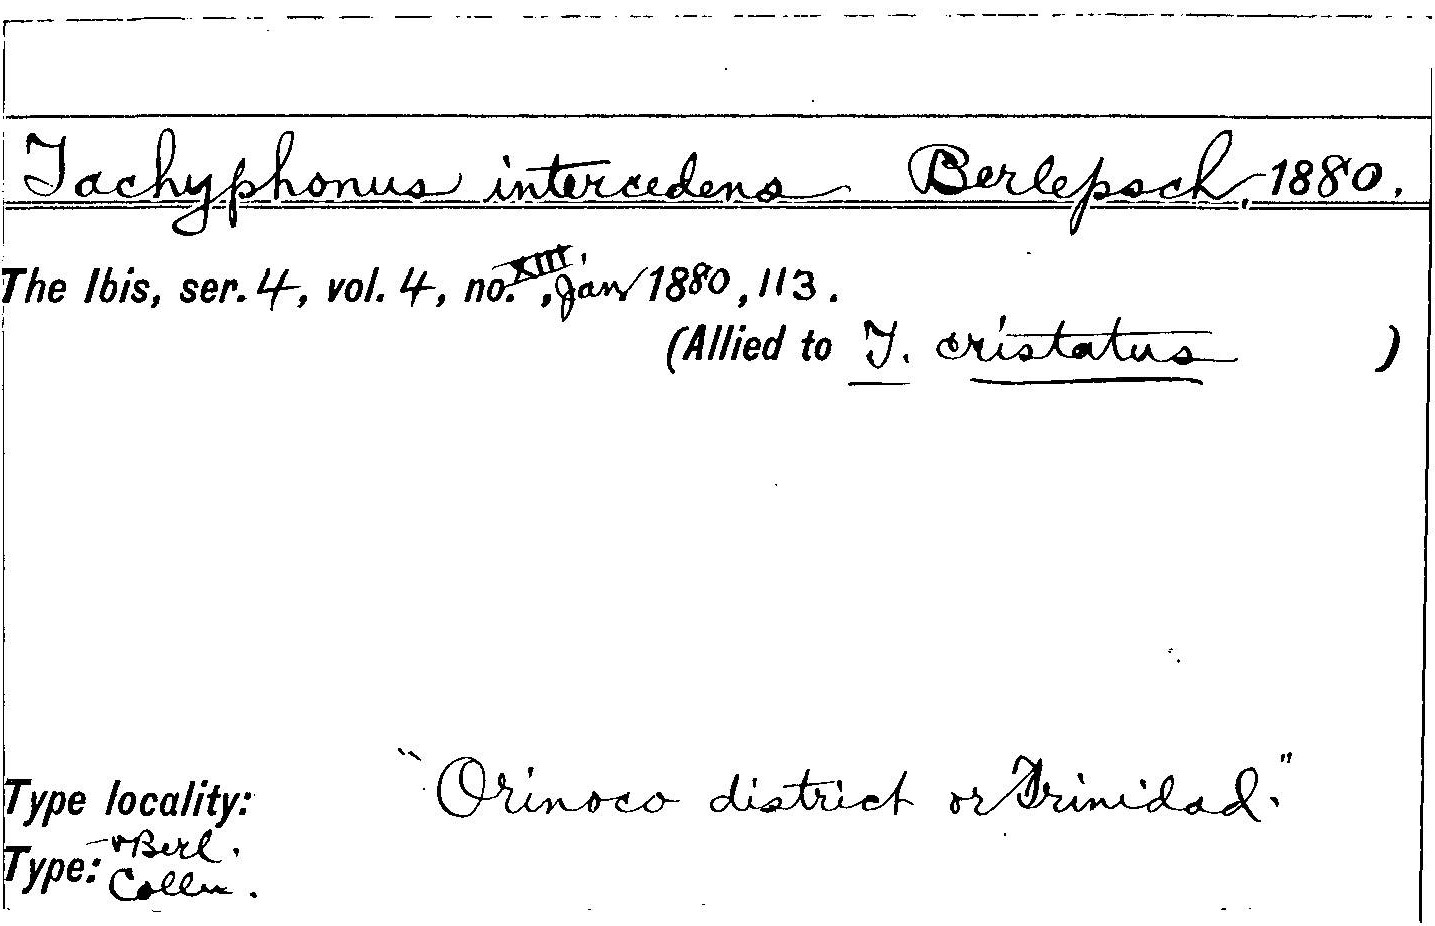 Tachyphonus intercedens Berlepsch, 1880.
The Ibis, ser. 4, vol. 4, no. XIII, Jan 1880, 113.
(Allied to T. cristatus )
Type locality: "Orinoco district or Trinidad."
Type: Berl.
Colln.